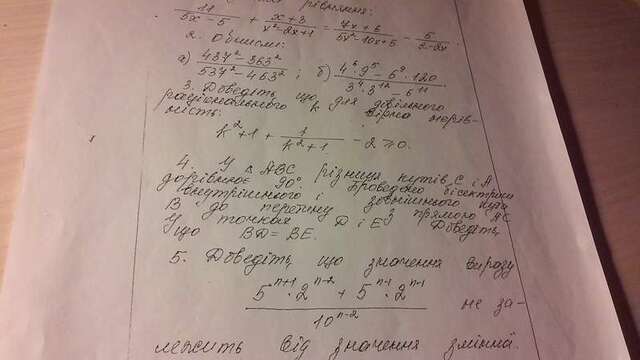 рівняння:
11/(5x-5) + (x+3)/(x²-2x+1) = (7x+6)/(5x²-10x+5) - 5/(2-2x).
2. Обчисліть:
а) (437²-363²)/(537²-463²); б) (4⁶·9⁵-6⁹·120)/(3⁴·3¹²-6¹¹)
3. Доведіть, що для довільного
раціонального k вірна нерів-
ність:
k²+1+1/(k²+1)-2≥0.
4. У △ABC різниця кутів C і A
дорівнює 90°. Проведено бісектриси
внутрішнього і зовнішнього кута
B до перетину з прямою AC
у точках D і E. Доведіть,
що BD=BE.
5. Доведіть, що значення виразу
(5ⁿ⁺¹·2ⁿ⁻²+5ⁿ⁻¹·2ⁿ⁻¹)/10ⁿ⁻² не за-
лежить від значення змінної.